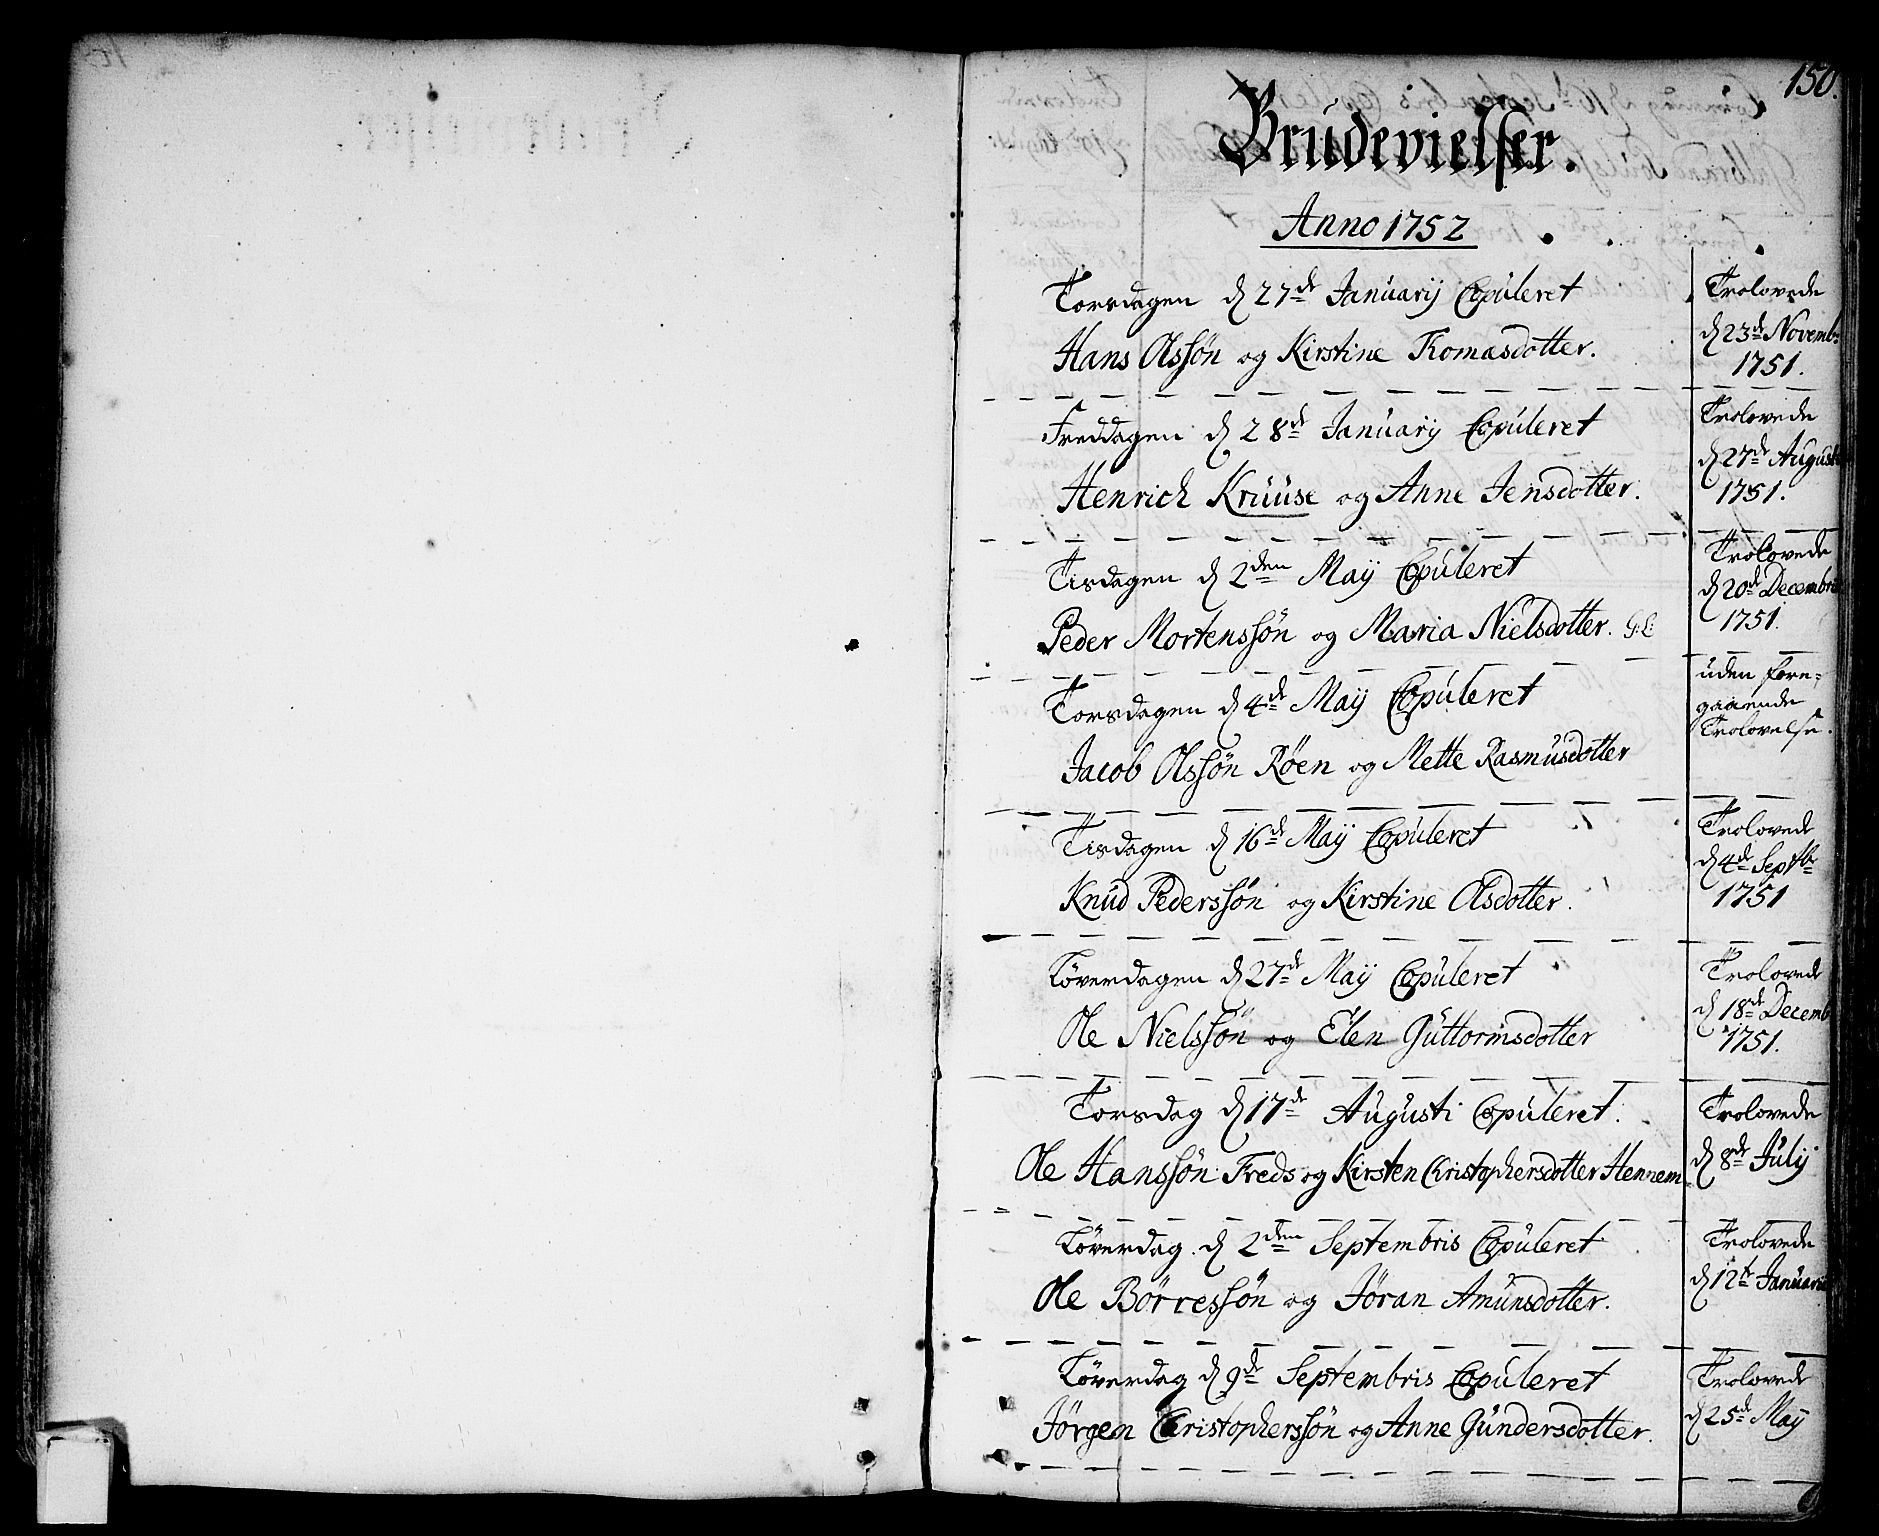 150.
Brudevielser.
Anno 1752
Torsdagen d 27de Januarij Copuleret
Hans Olssøn og Kirstine Thomasdotter.
Trolovede
d 23de Novemb:
1751.
Freddagen d 28de Januarij Copuleret
Henrich Kruuse og Anne Jensdotter.
Trolovede
d 27de Augusti
1751.
Tisdagen d 2den Maij Copuleret
Peder Mortenssøn og Maria Nielsdotter. G.L
Trolovede
d 20de Decembris
1751.
Torsdagen d 4de Maij Copuleret
Jacob Olssøn Røen og Mette Rasmusdotter
uden fore-
gaaende
Trolovelse.
Tisdagen d 16de Maij Copuleret
Knud Pederssøn og Kirstine Olsdotter.
Trolovede
d 4de Septbr
1751
Løverdagen d 27de Maij Copuleret
Ole Nielssøn og Elen Guttormsdotter
Trolovede
d 18de Decemb
1751.
Torsdag d 17de Augusti Copuleret.
Ole Hanssøn Freds og Kirsten Christophersdotter Hennem
Trolovede
d 8de Julij
Løverdag d 2den Septembris Copuleret
Ole Børressøn og Jøran Amunsdotter.
Trolovede
d 12te Januarii
Løverdag d 9de Septembris Copuleret
Jørgen Christopherssøn og Anne Gundersdotter.
Trolovede
d 25de Maij